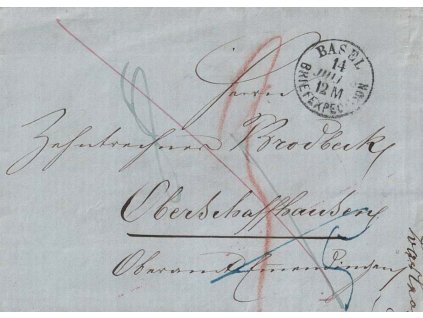 BASEL
14
JULI
12 M
BRIEFEXPEDITION
Herrn
Zehntrechner Brodbeck
Oberschaffhausen
Oberamt Emmendingen